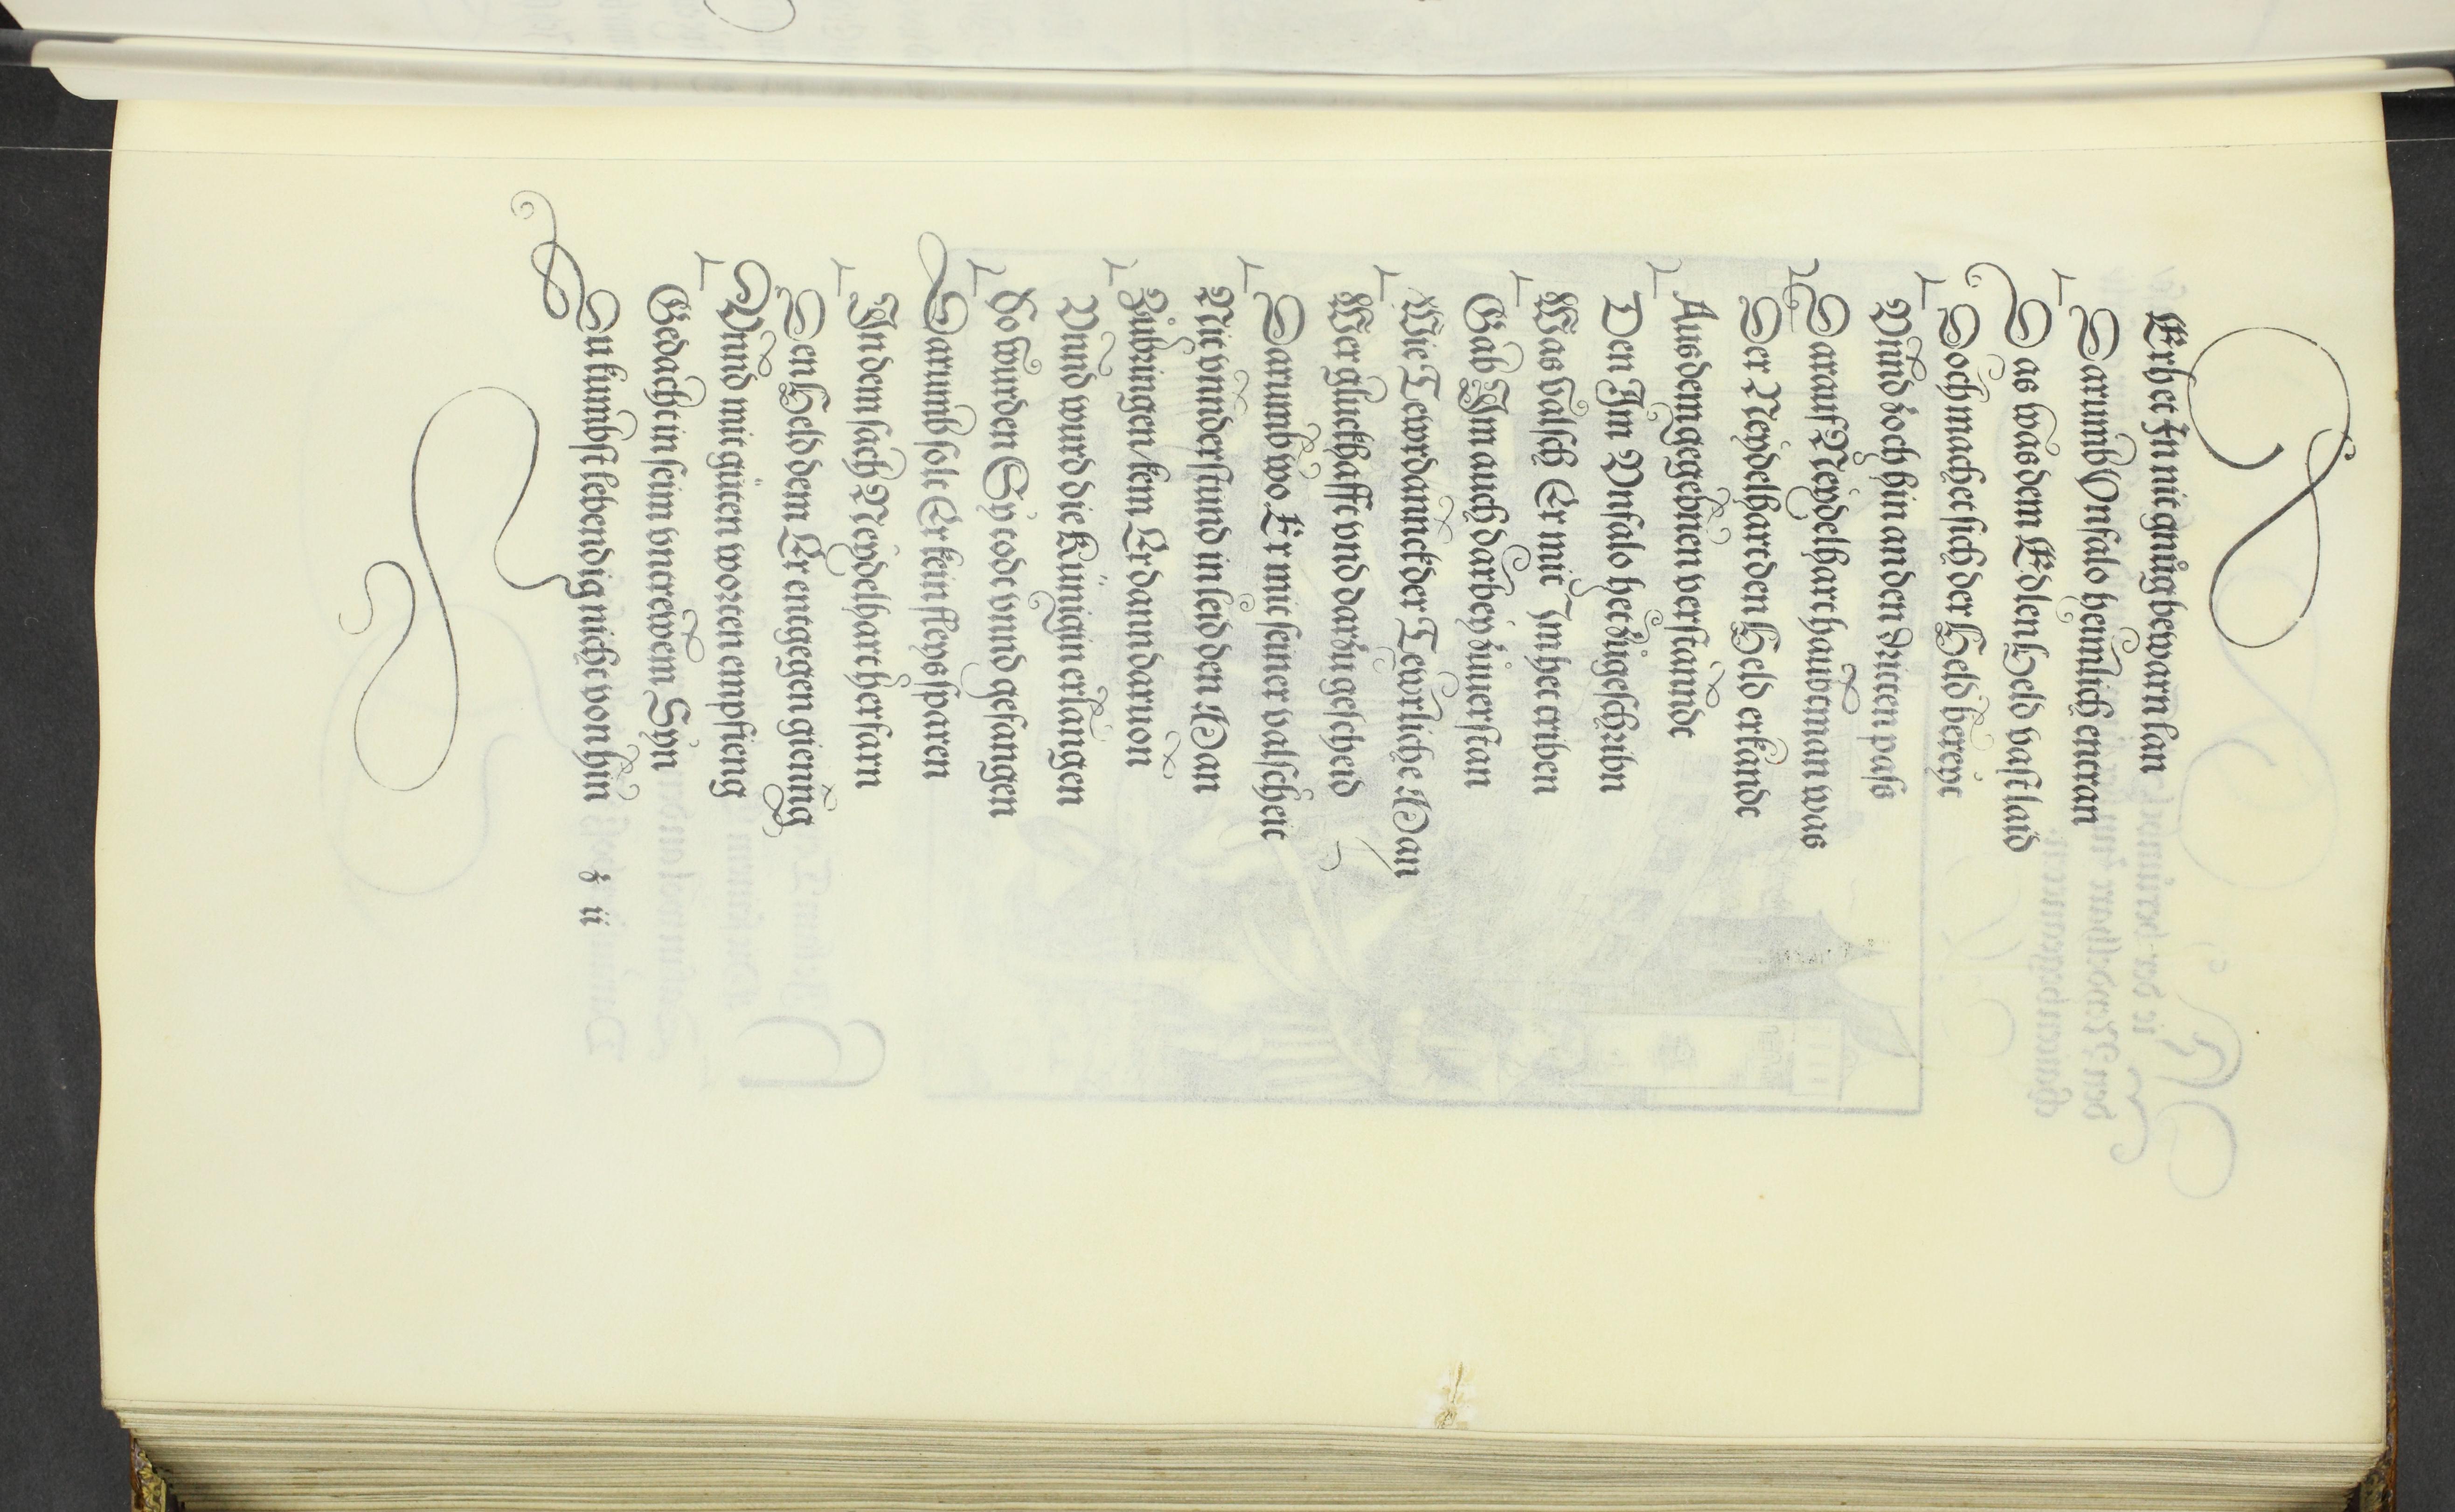 Er het In mit gnůg bewarn lan
Darumb Vnfalo heymlich entran
Das was dem Edlen Held vast laid
Doch machet sich der Held bereyt
Vnnd zoch hin an den dritten paſs
Darauf Neydelhart haubtman was
Der Neydelhart den Held erkandt
Aus dem gegebnen verstanndt
Den Im Vnfalo het zůgeschribn
Was valsch Er mit Im het triben
Gab Im auch darbey zůuerstan
Wie Tewrdannck der Tewrliche Man
Wer glückhafft vnd darzů gescheid
Darumb wo Er mit seiner valscheit
Nit vnnderstund in leid den Man
Zůbringen / kem Er dann daruon
Vnnd wurd die Künigin erlangen
So wurden Sy todt vnnd gefangen
Darumb solt Er kein fleyſs sparen
In dem sach Neydelhart herfarn
Den Held dem Er entgegen gienng
Vnnd mit gůten worten empfieng
Gedacht in seim vntrewem Syn
Du kumbst lebendig nicht von hin
z ii